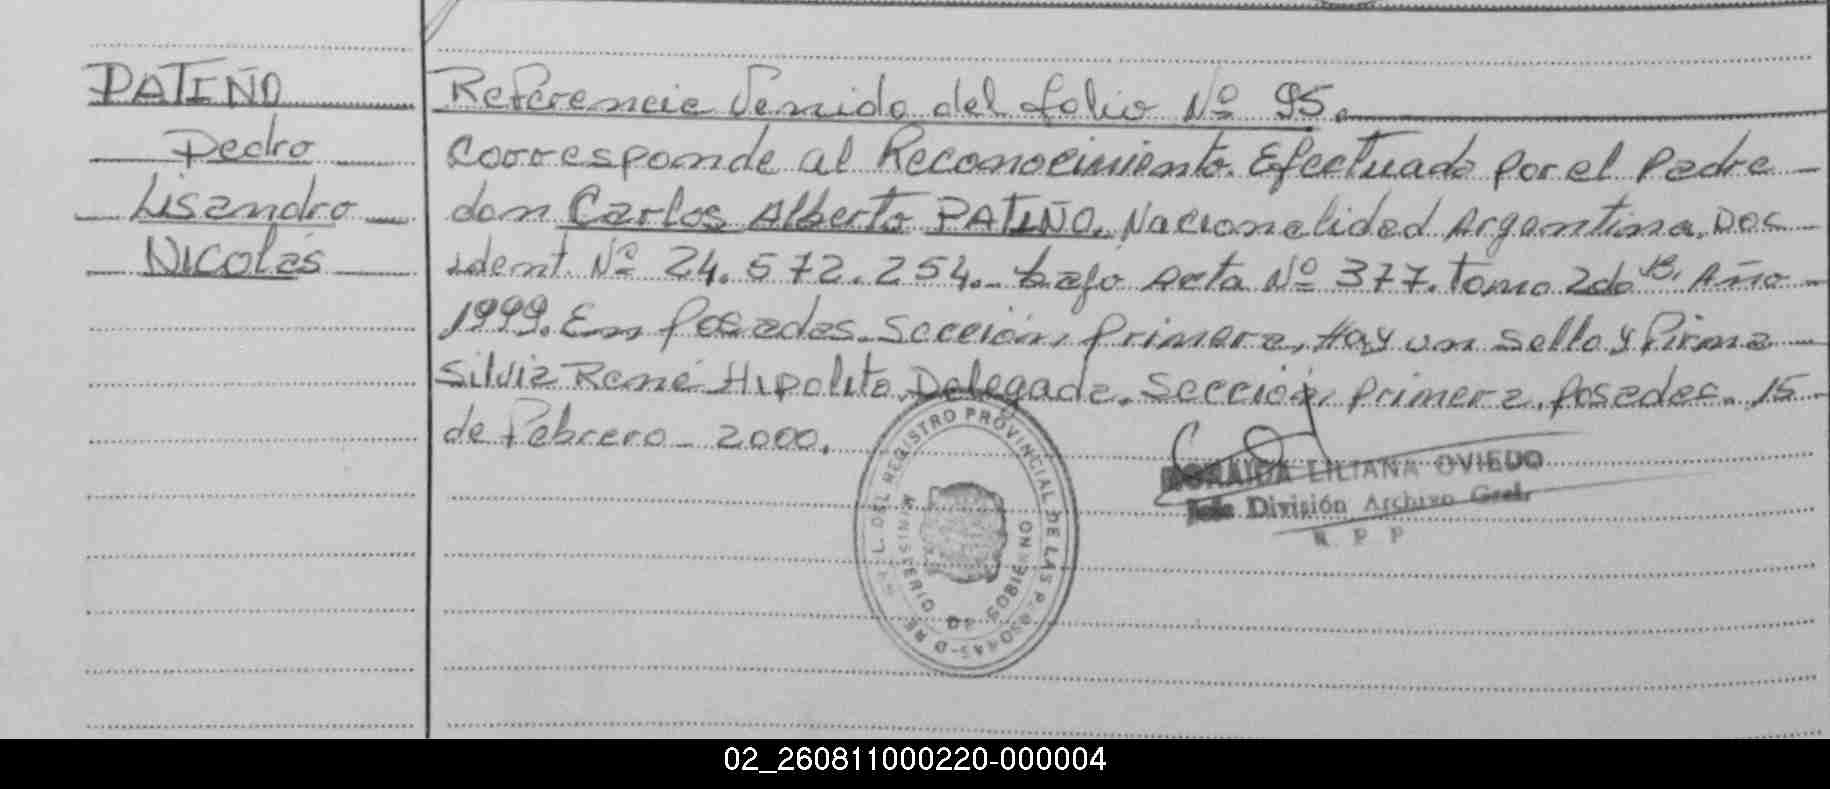 PATIÑO
Pedro
Lisandro
Nicolás
Referencia Venida del folio Nº 95.
Corresponde al Reconocimiento. Efectuado por el Padre
don Carlos Alberto PATIÑO. Nacionalidad Argentina. Doc
ident. Nº 24.572.254.- bajo Acta Nº 377. Tomo 2do B. Año
1999. En Posadas. Sección Primera, Hay un sello y firma
Silvia René Hipolito, Delegada. Sección Primera. Posadas. 15
de Febrero - 2000.
L. DEL REGISTRO PROVINCIAL DE LAS P
MINISTERIO DE GOBIERNO
LILIANA OVIEDO
Jefe División Archivo Gral.
R. P. P
02_260811000220-000004